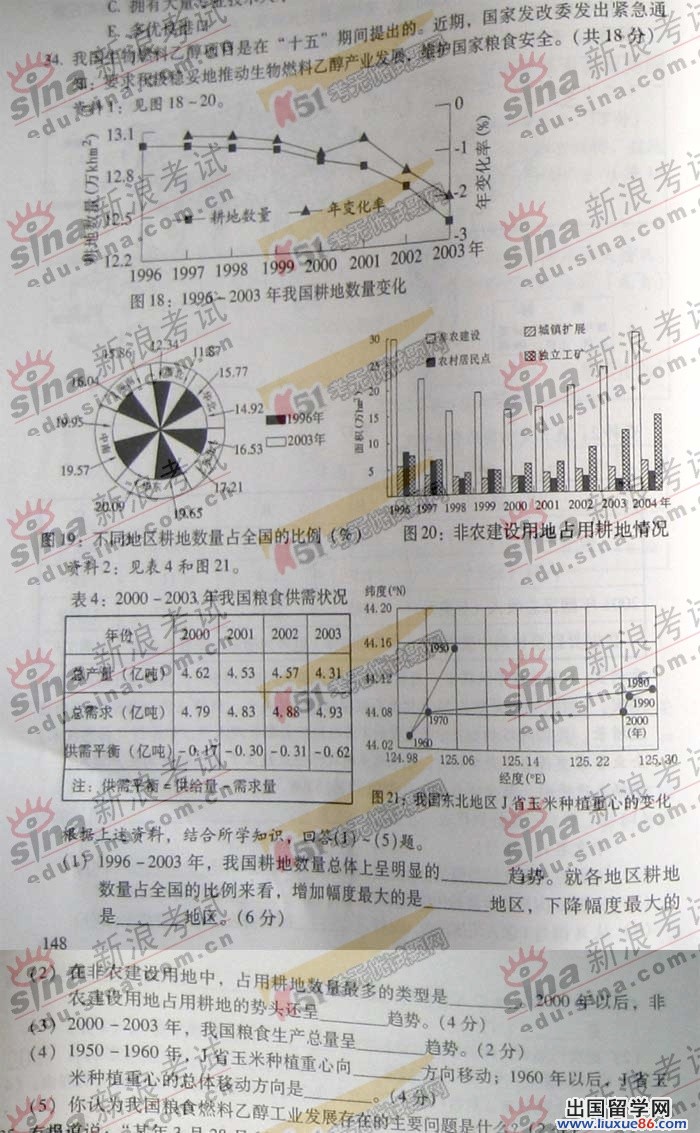 C. 拥有大量
E. 多优惠
34. 我国生物燃料乙醇项目是在“十五”期间提出的。近期，国家发改委发出紧急通
知：要求积极稳妥地推动生物燃料乙醇产业发展，维护国家粮食安全。(共18分)
资料1：见图18-20。
耕地数量(万khm²)
13.1
12.8
12.5
12.2
0
-1
-2
-3
年变化率(%)
耕地数量
年变化率
1996 1997 1998 1999 2000 2001 2002 2003年
图18：1996-2003年我国耕地数量变化
15.86 12.34 11.87
16.04 15.77
19.95 14.92
19.57 16.53
20.09 19.65 17.21
华北
华东
1996年
2003年
图19：不同地区耕地数量占全国的比例(%)
面积(万hm²)
30
25
20
15
10
5
非农建设 城镇扩展
农村居民点 独立工矿
1996 1997 1998 1999 2000 2001 2002 2003 2004年
图20：非农建设用地占用耕地情况
资料2：见表4和图21。
表4：2000-2003年我国粮食供需状况
年份 2000 2001 2002 2003
总产量(亿吨) 4.62 4.53 4.57 4.31
总需求(亿吨) 4.79 4.83 4.88 4.93
供需平衡(亿吨) -0.17 -0.30 -0.31 -0.62
注：供需平衡=供给量-需求量
纬度(°N)
44.20
44.16
44.12
44.08
44.02
1950
1960
1970
1980
1990
2000
(年)
124.98 125.06 125.14 125.22 125.30
经度(°E)
图21：我国东北地区J省玉米种植重心的变化
根据上述资料，结合所学知识，回答(1)-(5)题。
(1) 1996-2003年，我国耕地数量总体上呈明显的______趋势。就各地区耕地
数量占全国的比例来看，增加幅度最大的是______地区，下降幅度最大的
是______地区。(6分)
148
(2) 在非农建设用地中，占用耕地数量最多的类型是______。2000年以后，非
农建设用地占用耕地的势头还呈______趋势。(4分)
(3) 2000-2003年，我国粮食生产总量呈______趋势。(2分)
(4) 1950-1960年，J省玉米种植重心向______方向移动；1960年以后，J省玉
米种植重心的总体移动方向是______。(4分)
(5) 你认为我国粮食燃料乙醇工业发展存在的主要问题是什么？
sina新浪考试
edu.sina.com.cn
K51考元哈试题网
出国留学网
www.liuxue86.com